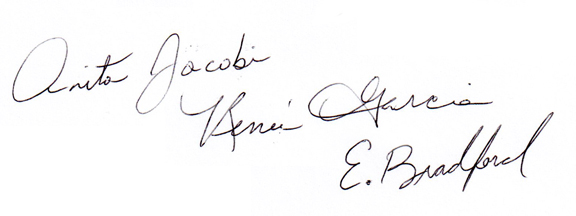 Anita Jacobi
Renée Garcia
E. Bradford